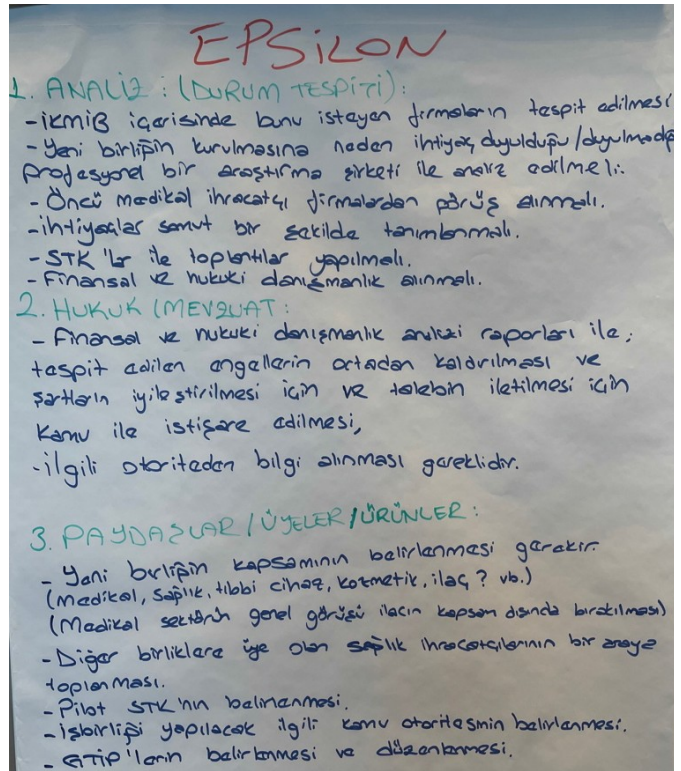 EPSİLON
1. ANALİZ : (DURUM TESPİTİ) :
- İKMİB içerisinde bunu isteyen firmaların tespit edilmesi
- Yeni birliğin kurulmasına neden ihtiyaç duyulduğu/duyulmadığı
profesyonel bir araştırma şirketi ile analiz edilmeli.
- Öncü medikal ihracatçı firmalardan görüş alınmalı.
- ihtiyaçlar somut bir şekilde tanımlanmalı.
- STK'lar ile toplantılar yapılmalı.
- Finansal ve hukuki danışmanlık alınmalı.
2. HUKUK (MEVZUAT :
- Finansal ve hukuki danışmanlık analizi raporları ile;
tespit edilen engellerin ortadan kaldırılması ve
şartların iyileştirilmesi için ve talebin iletilmesi için
Kamu ile istişare edilmesi,
- ilgili otoriteden bilgi alınması gereklidir.
3. PAYDAŞLAR / ÜYELER / ÜRÜNLER :
- Yeni birliğin kapsamının belirlenmesi gerekir.
(Medikal, Sağlık, tıbbi cihaz, kozmetik, ilaç ? vb.)
(Medikal sektörün genel görüşü ilacın kapsam dışında bırakılması)
- Diğer birliklere üye olan sağlık ihracatçılarının bir araya
toplanması.
- Pilot STK'nın belirlenmesi.
- İşbirliği yapılacak ilgili kamu otoritesinin belirlenmesi.
- GTİP'lerin belirlenmesi ve düzenlenmesi.